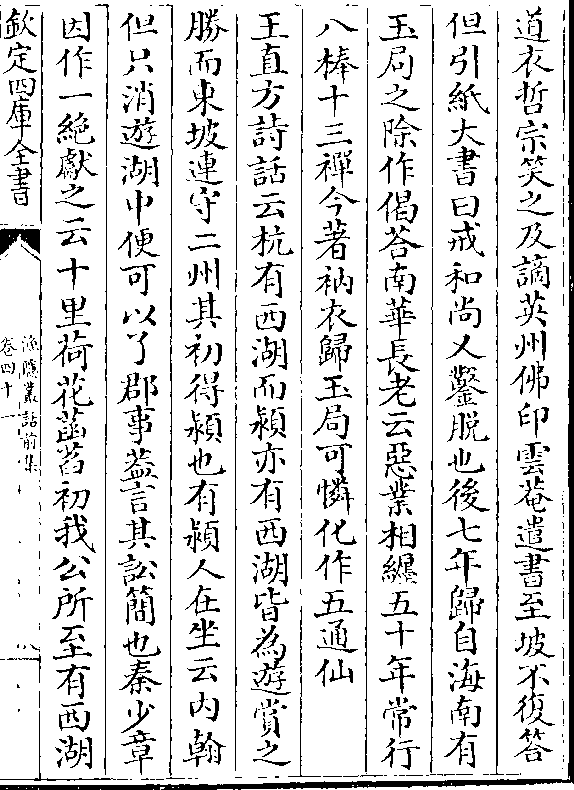 道衣哲宗笑之及謫英州佛印雲菴遣書至坡不復答
但引紙大書曰戒和尚又鏨脱也後七年歸自海南有
玉局之除作偈答南華長老云惡業相纏五十年常行
八棒十三禪今著衲衣歸玉局可憐化作五通仙
王直方詩話云杭有西湖而潁亦有西湖皆為遊賞之
勝而東坡連守二州其初得潁也有潁人在坐云内翰
但只消遊湖中便可以了郡事葢言其訟簡也秦少章
因作一絶獻之云十里荷花菡萏初我公所至有西湖
欽定四庫全書
漁隱叢話前集
卷四十一
八